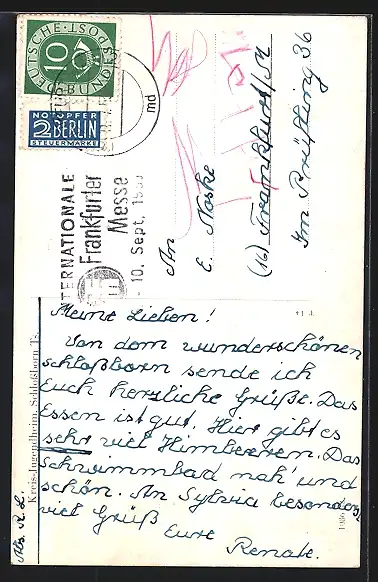 DEUTSCHE BUNDESPOST
10
NOTOPFER
2 BERLIN
STEUERMARKE
md
INTERNATIONALE
Frankfurter
Messe
- 10. Sept. 195
An
E. Naske
(16) Frankfurt/M
Im Prüfling 36
Kreis-Jugendheim, Schloßborn Ts.
Abs. R. L.
Meine Lieben!
Von dom wunderschönen
Schloßborn sende ich
Euch herzliche Grüße. Das
Essen ist gut. Hier gibt es
sehr viel Himbeeren. Das
Schwimmbad nah' und
schön. An Sylvia besonders
viel Grüß
Eure
Renate.